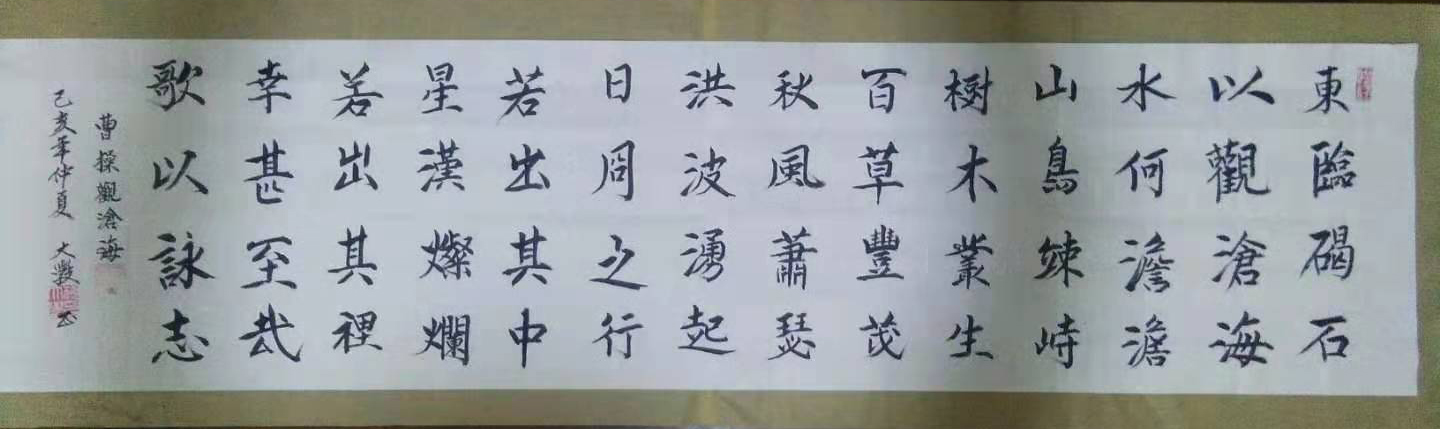 東臨碣石
以觀滄海
水何澹澹
山島竦峙
樹木叢生
百草豐茂
秋風蕭瑟
洪波湧起
日月之行
若出其中
星漢燦爛
若出其裡
幸甚至哉
歌以詠志
曹操觀滄海
己亥年仲夏 大